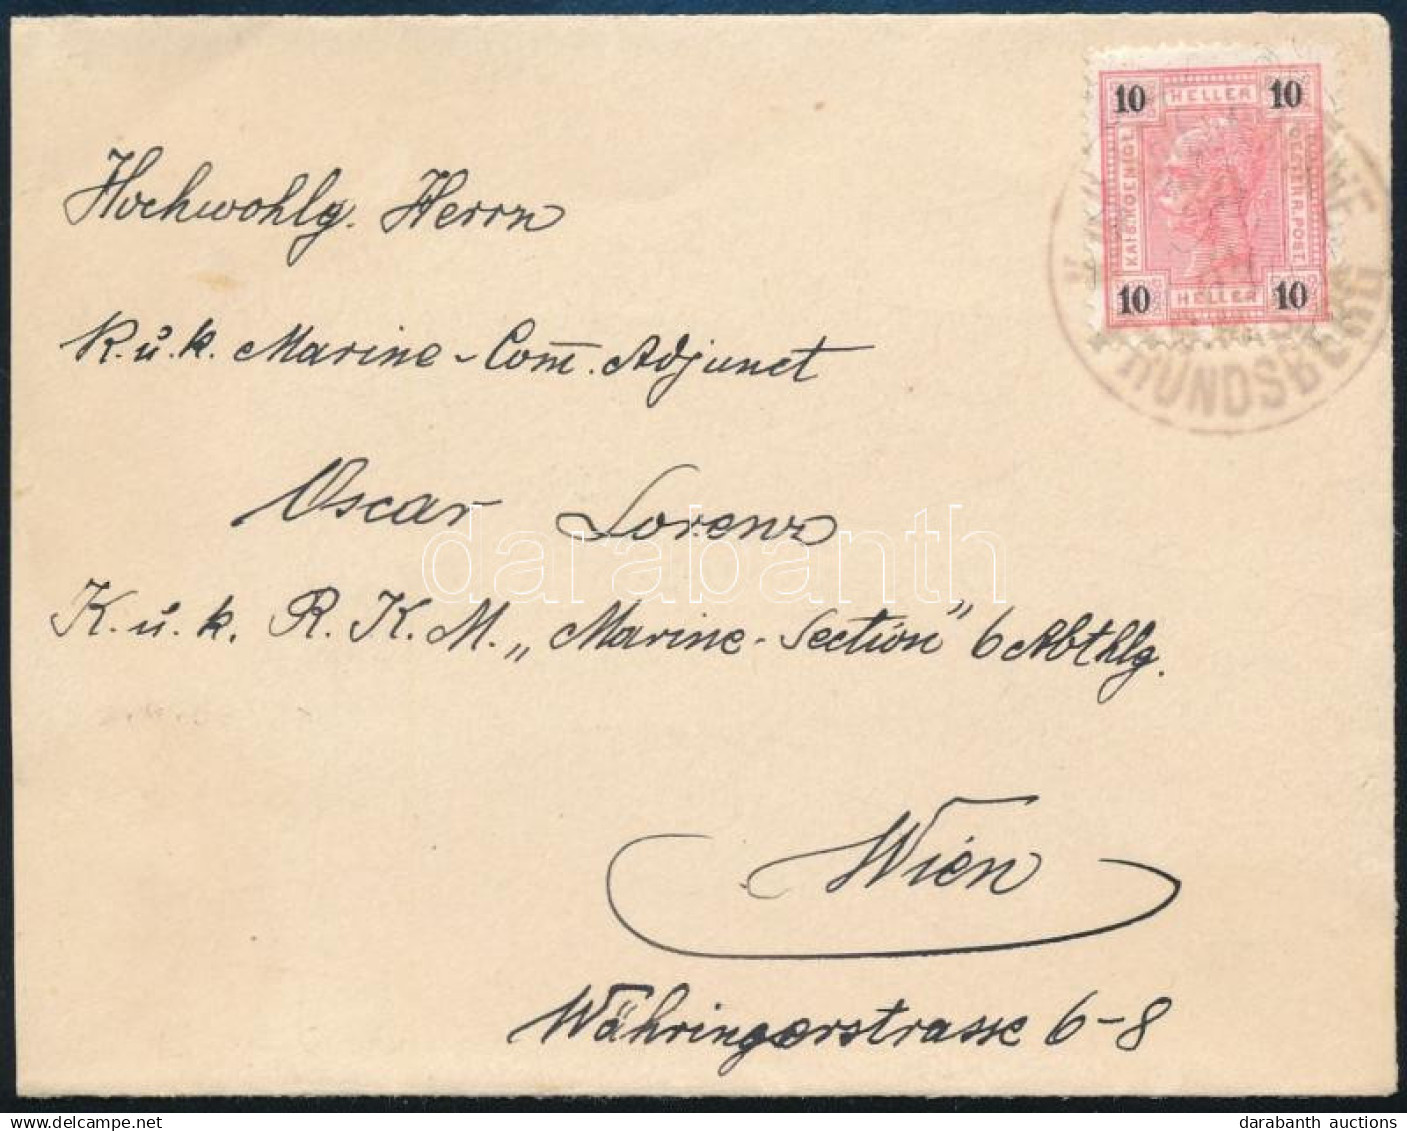 10 HELLER 10
KAIS.KOENIGL
OESTERR.POST
10 HELLER 10
HUNDSBERG
Hochwohlg. Herrn
K. u. k. Marine-Com. Adjunct
Oscar Lorenz
K. u. k. R. K. M. „Marine-Section" 6 Abthlg.
Wien
Währingerstrasse 6-8
darabanth
darabanth auctions